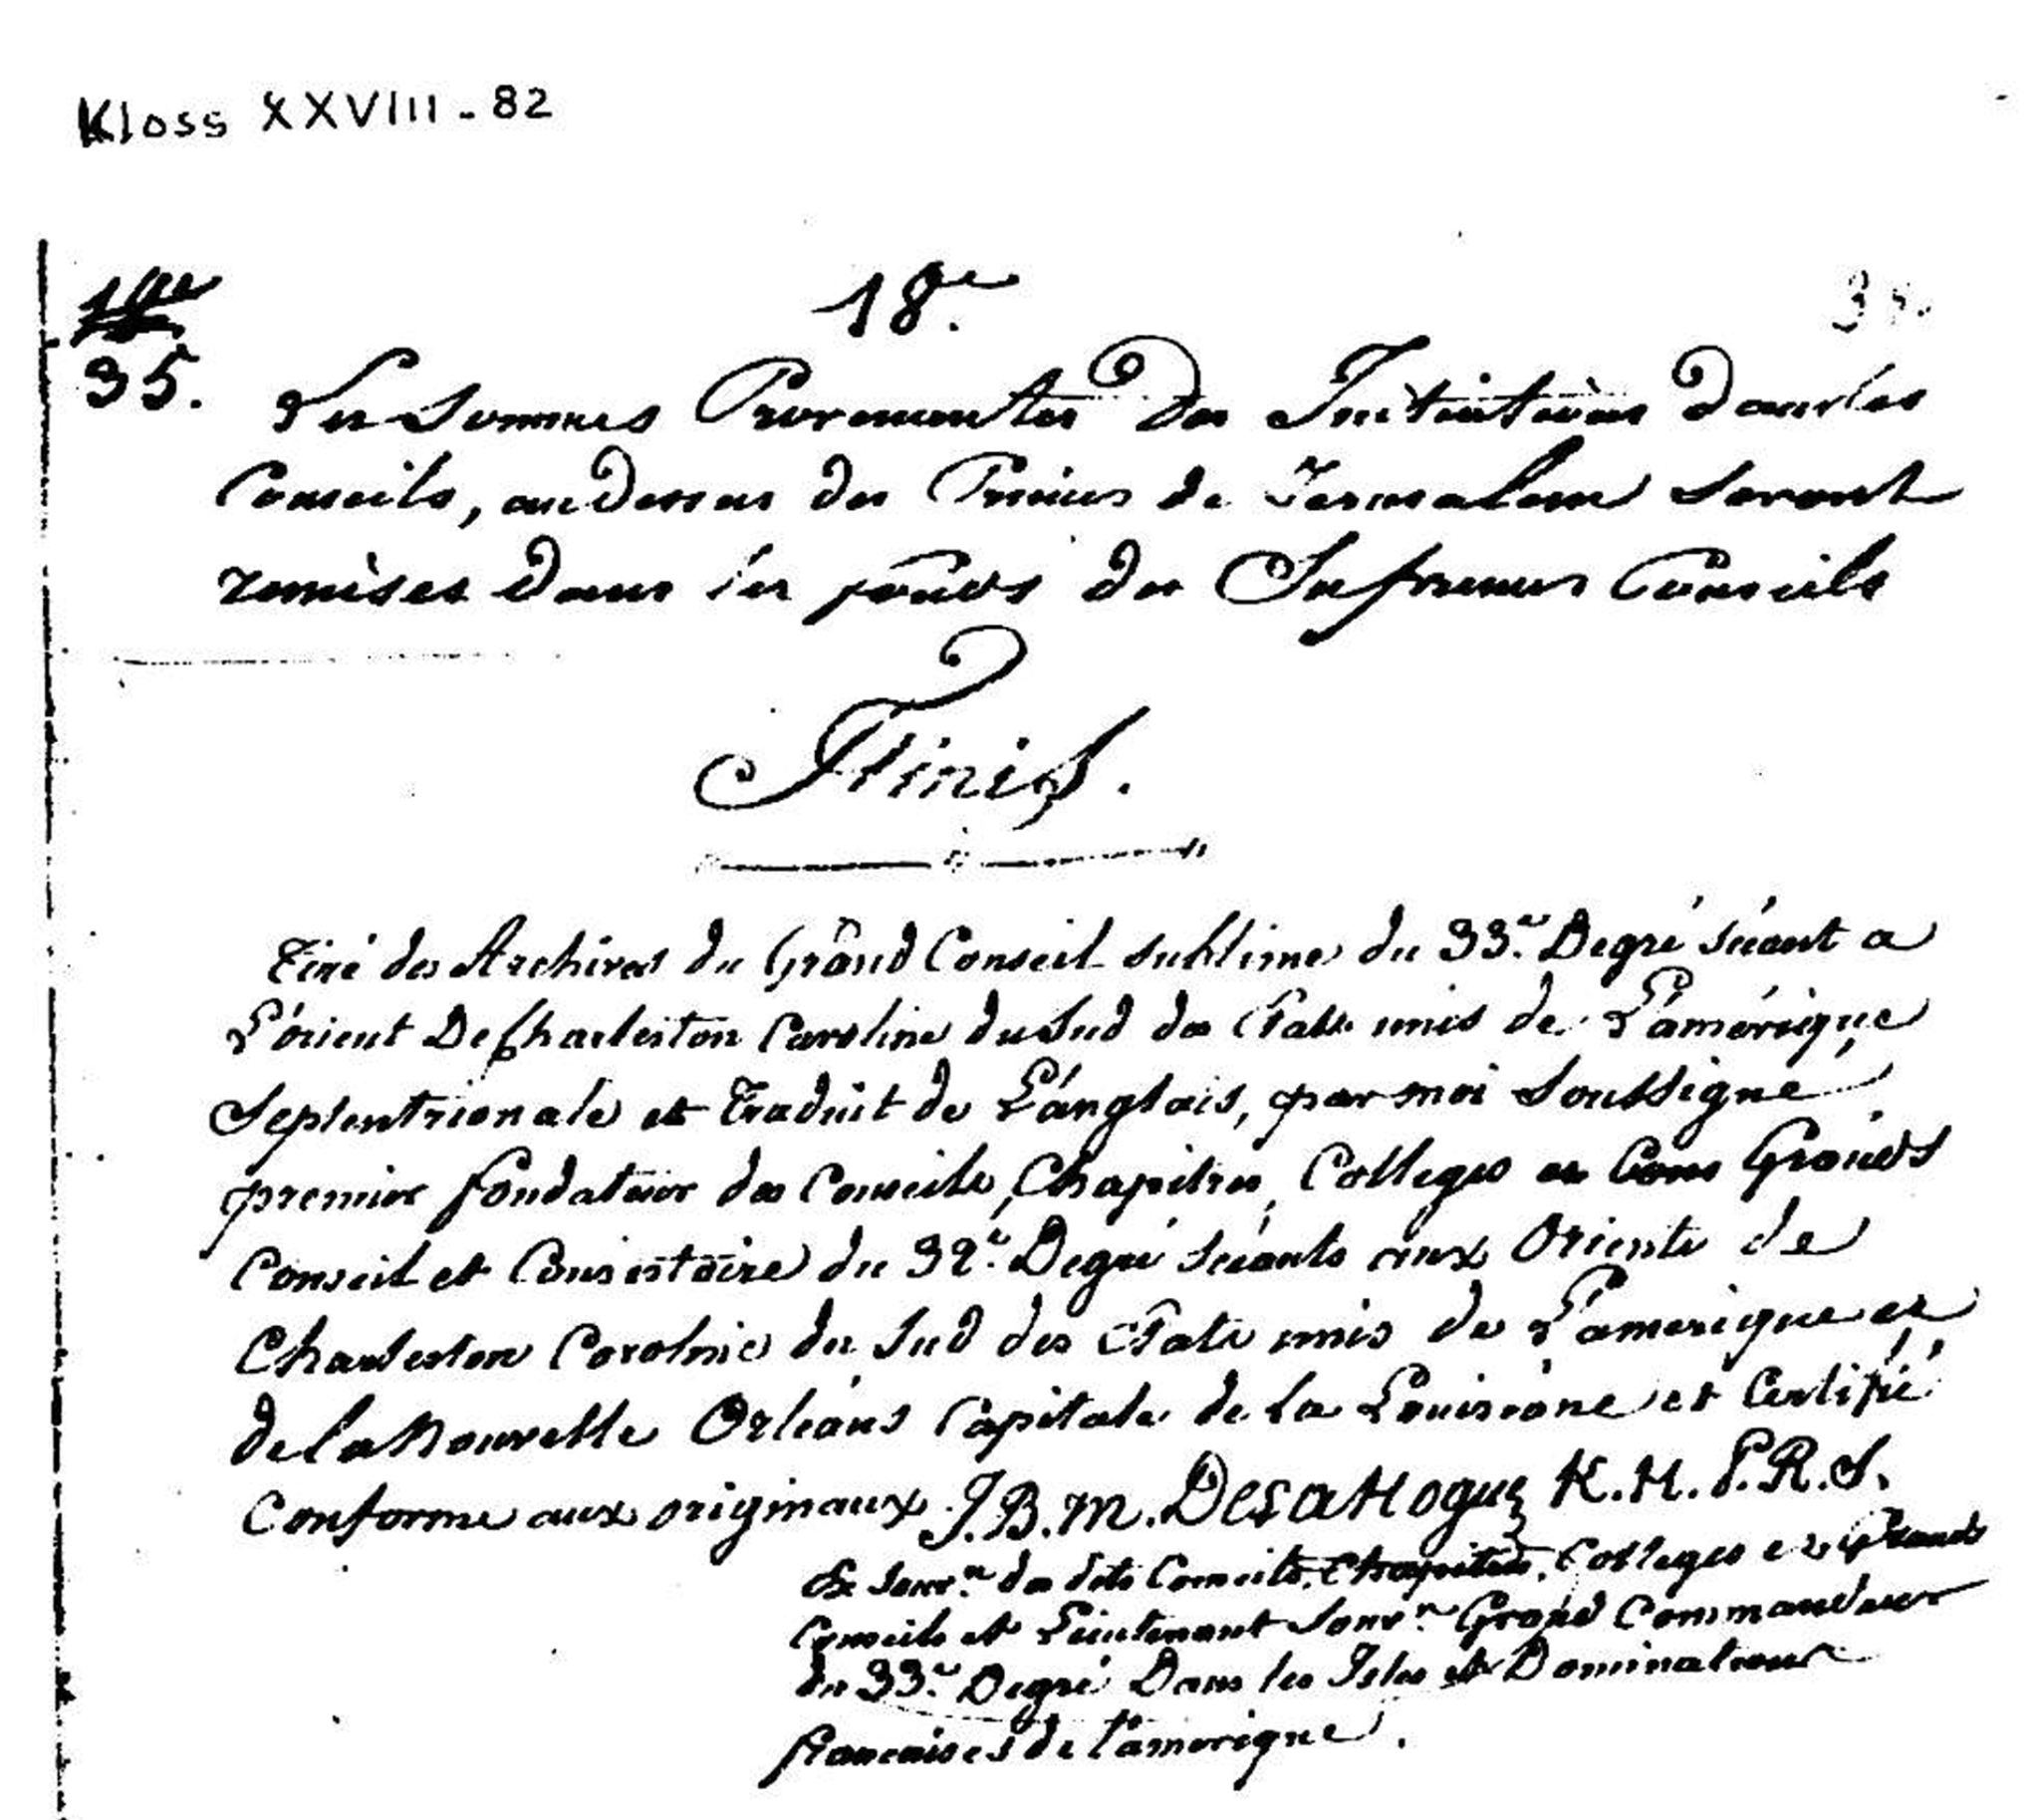 Kloss XXVIII - 82
18e.
35.
Les Sommes Provenantes des Initiations dans les
Conseils, au Dessus des Princes de Jerusalem seront
remises dans les fonds des Supremes Conseils
Finis.
Tiré des Archives du Grand Conseil sublime du 33e. Degré séant a
L'orient De Charleston Caroline du Sud des Etats unis de L'amérique
Septentrionale et Traduit de L'anglais, par moi Soussigné
premier fondateur des Conseils, Chapitres, Colleges et Grands
Conseil et Consistoire du 32e. Degré séants aux Orients de
Charleston Caroline du Sud des Etats unis de L'amerique et
de la Nouvelle Orléans Capitale de la Louisiane et Certifié
Conforme aux originaux J.B.M. DeLaHogue K.H. P.R.S.
Ex Souvn. des dits Conseils, Chapitres, Colleges et Grands
Conseils et Lieutenant Souvn. Grand Commandeur
du 33e. Degré Dans les Isles et Dominations
francaises de l'amerique.